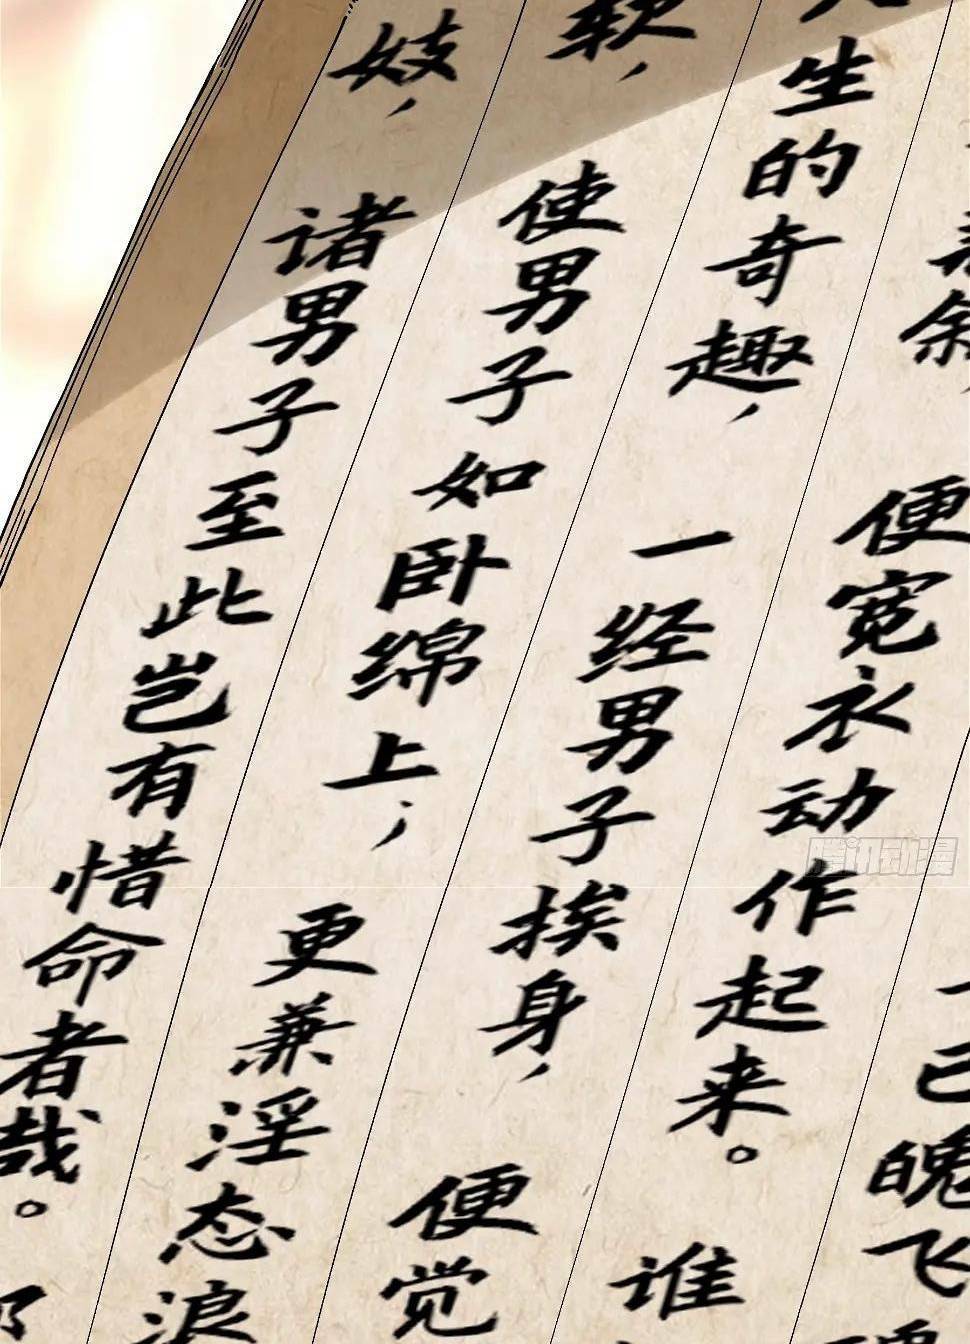 己魄飞
余，便宽衣动作起来。谁
生的奇趣，一经男子挨身，便觉
软，使男子如卧绵上；更兼淫态浪
妓，诸男子至此岂有惜命者哉。
腾讯动漫